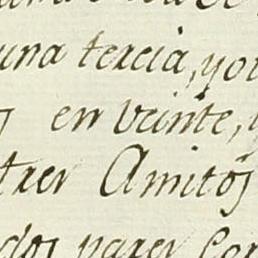 una tercia, yot
en veinte, y
tres Amitos
dos pares Cor